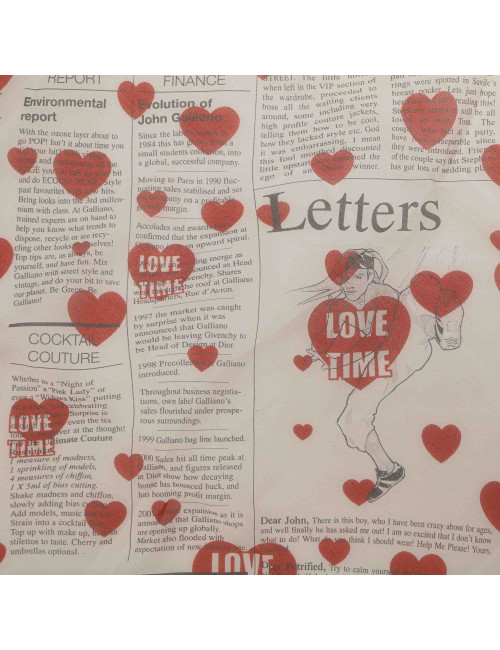 REPORT
Environmental
report
With the ozone layer about to
go POP! Isn't it about time you
did your bit
and do ECO Style
past favourites hits.
Bring looks into the 3rd millen-
nium with class. At Galliano,
trained experts are on hand to
help you know what trends to
dispose, recycle or are recy-
cling other looks selves!
Top tips are, as always, be
yourself, and have fun. Mix
Galliano with street style and
vintage, and do your bit to save
our planet. Be Green, Be
Galliano!
COCKTAIL
COUTURE
Whether its a "Night of
Passion" a "Pink Lady" or
even a "Widows Kiss" putting
celebrating
Surprise is
even the tea
over at the thought!
timate Couture
1 measure of madness,
1 sprinkling of models,
4 measures of chiffon,
1 X 5ml of bias cutting.
Shake madness and chiffon,
slowly adding bias
Add models, music
Strain into a cocktail
Top up with make up,
stilettos to taste. Cherry and
umbrellas optional.
FINANCE
Evolution of
John Galliano
Since the label 's launch in
1984 this has from a
small students into
a global, successful company.
Moving to Paris in 1990 fluc-
tuating sales stabilised and set
company on a profitable
margin.
Accolades and award
confirmed that the expansion at
upward spiral.
merge as
announced as Head
Givenchy. Shares
the roof at Galliano
Headquarters, Rue d'Avron.
1997 the market was caught
by surprise when it was
announced that Galliano
would be leaving Givenchy to
be Head of Design at Dior.
1998 Precollection Galliano
introduced.
Throughout business negotia-
tions, own label Galliano's
sales flourished under prospe-
rous surroundings.
1999 Galliano bag line launched.
2000 Sales hit all time peak at
Galliano, and figures released
at Dior show how decaying
house has bounced back, and
has booming profit margin.
200 expansion as it is
announced that Galliano shops
are opening up globally.
Market also flooded with
expectation of new
STREET. The little
when left in the VIP section of
the wardrobe, proceeded to
boss all the waiting clients
around, some including very
high profile couture jackets,
telling them how to be cool,
how they lacked style etc. God
it was embarrassing. I mean
this foul mouthed discounted
little upstart the
ego of an Oscar winner.
rings were spotted in Swile's
breast pocket. Lets just hope
reading this!
still be all
at a party.
Tim. The
couple
have inseparable since
they were introduced. Friends
of the couple say that Stephanie
has got lots of wedding
Letters
LOVE
TIME
LOVE
TIME
LOVE
TIME
LOVE
Dear John, There is this boy, who I have been crazy about for ages,
and well finally he has asked me out! I am so excited that I don't know
what to do! What do you think I should wear! Help Me Please! Yours,
Dear Petrified, Try to calm yourself